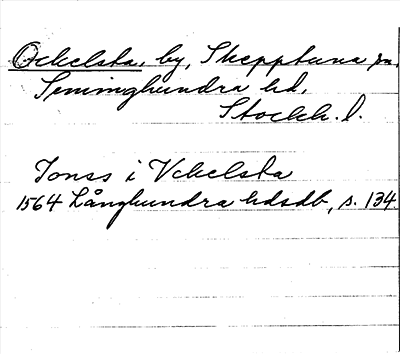 Ockelsta, by, Skepptuna sn,
Seminghundra hd,
Stockh. l.
Jonss i Vckelsta
1564 Långhundra hdsdb, s. 134.